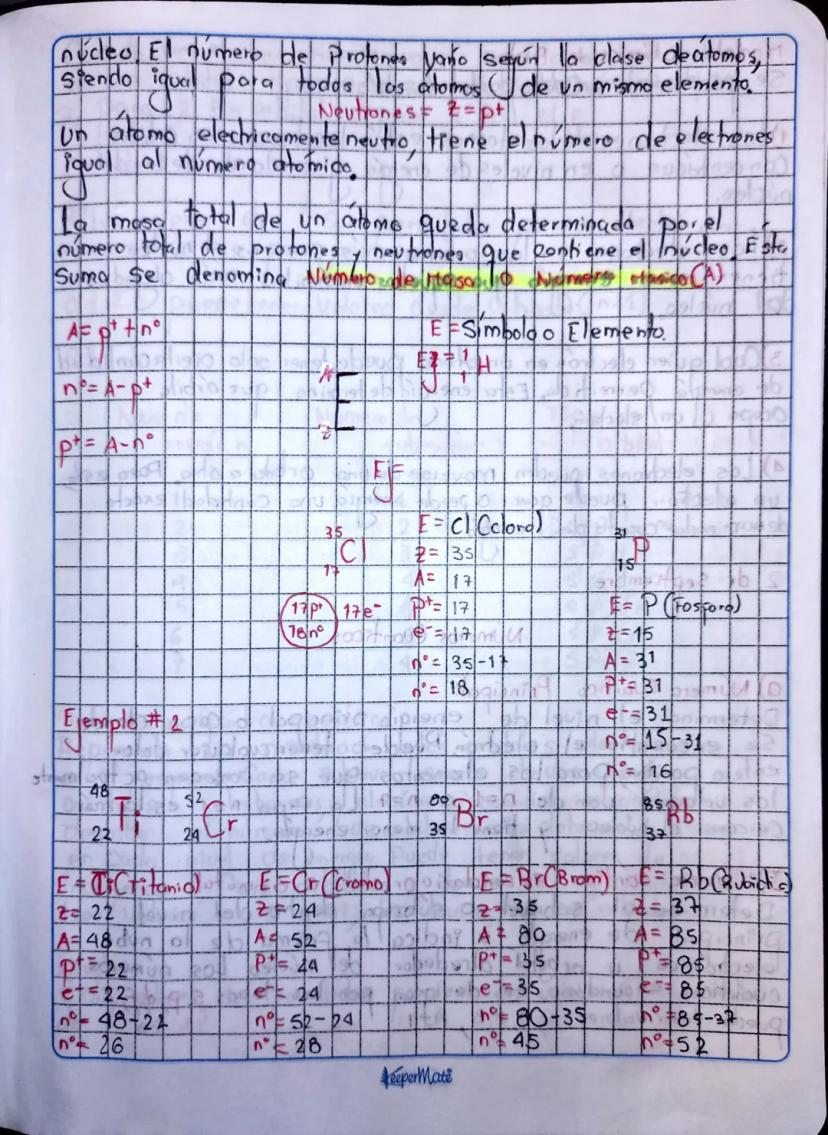 núcleo. El número de Protones vario según la clase de átomos,
siendo igual para todos los átomos de un mismo elemento.
Neutrones = Z = p+
Un átomo electricamente neutro, tiene el número de electrones
igual al número atómico.
La masa total de un átomo queda determinada por el
número total de protones y neutrones que contiene el núcleo. Ésta
Suma se denomina Número de Masa o Número Masico (A)
A = p+ + n°
n° = A - p+
p+ = A - n°
E = Símbolo o Elemento.
Ej = 1 H
1
A
E
Z
Ej =
35
Cl
17
17p+ 17e-
18n°
E = Cl (cloro)
Z = 35
A = 17
P+ = 17
e- = 17
n° = 35-17
n° = 18
31
P
15
E = P (Fosforo)
Z = 15
A = 31
P+ = 31
e- = 31
n° = 15-31
n° = 16
Ejemplo # 2
48 Ti 22
52 Cr 24
80 Br 35
85 Rb 37
E = Ti (Titanio)
Z = 22
A = 48
P+ = 22
e- = 22
n° = 48-22
n° = 26
E = Cr (Cromo)
Z = 24
A = 52
P+ = 24
e- = 24
n° = 52-24
n° = 28
E = Br (Brom)
Z = 35
A = 80
P+ = 135
e- = 35
n° = 80-35
n° = 45
E = Rb (Rubidio)
Z = 37
A = 85
P+ = 85
e- = 85
n° = 85-37
n° = 52
KeeperMate